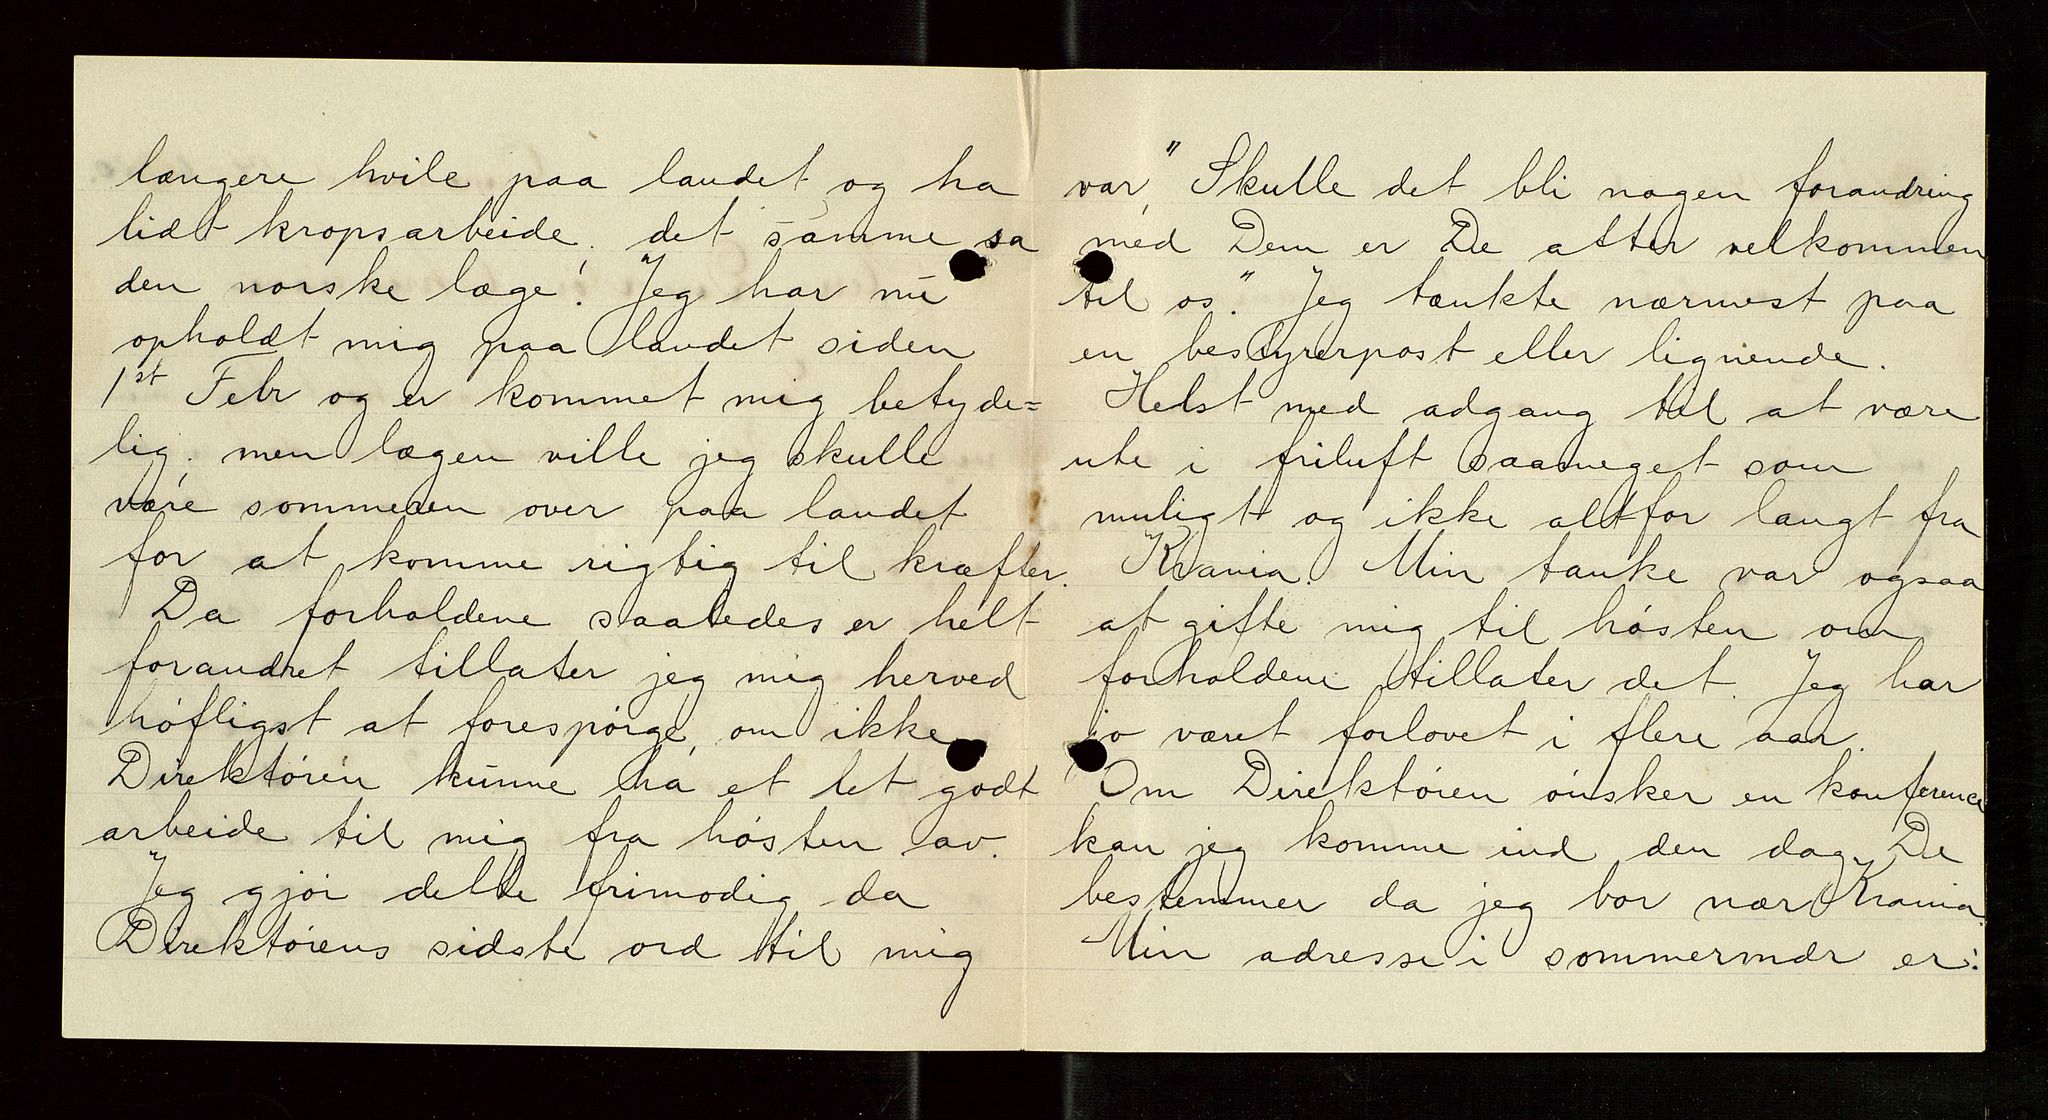 længere hvile paa landet og ha
lidt kropsarbeide; det samme sa
den norske læge! Jeg har nu
opholdt mig paa landet siden
1st Febr og er kommet mig betyde=
lig; men lægen ville jeg skulle
være sommeren over paa landet
for at komme rigtig til kræfter.
Da forholdene saaledes er helt
forandret tillater jeg mig herved
høfligst at forespørge, om ikke
Direktøren kunne ha et let godt
arbeide til mig fra høsten av.
Jeg gjør dette frimodig da
Direktørens sidste ord til mig
var, "Skulle det bli nogen forandring
med Dem er De atter velkommen
til os." Jeg tænkte nærmest paa
en bestyrerpost eller lignende.
Helst med adgang til at være
ute i friluft saameget som
muligt og ikke altfor langt fra
Krania. Min tanke var ogsaa
at gifte mig til høsten om
forholdene tillater det. Jeg har
jo været forlovet i flere aar.
Om Direktøren ønsker en konference
kan jeg komme ind den dag De
bestemmer da jeg bor nær Krania.
Min adresse i sommermdr er: